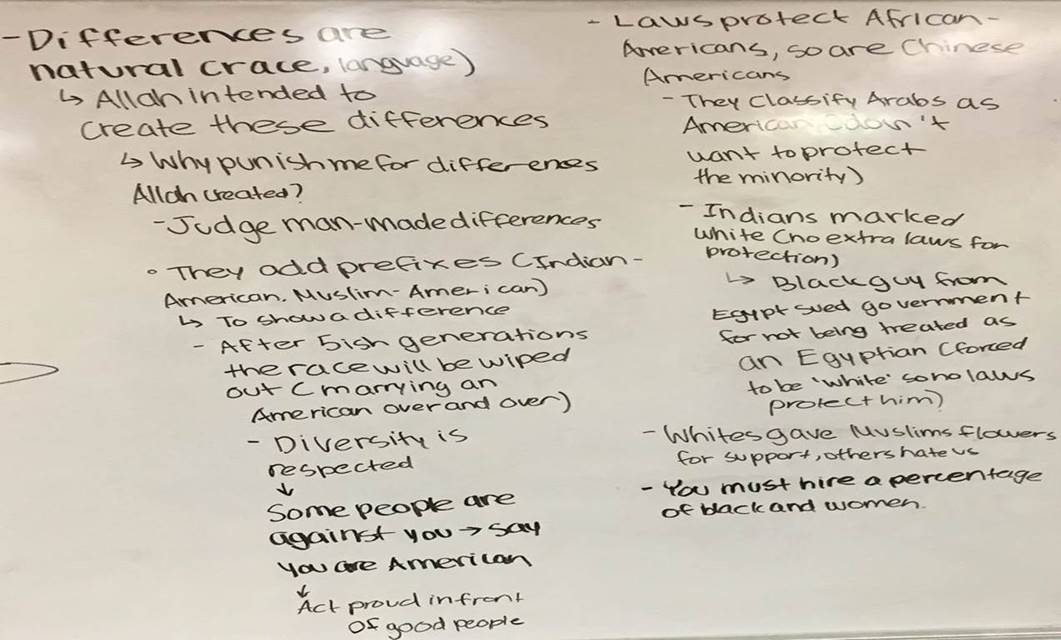 - Differences are
natural (race, language)
↳ Allah intended to
create these differences
↳ Why punish me for differences
Allah created?
- Judge man-made differences
• They add prefixes (Indian-
American, Muslim-American)
↳ To show a difference
- After 5ish generations
the race will be wiped
out (marrying an
American over and over)
- Diversity is
respected
↓
Some people are
against you → say
you are American
↓
Act proud in front
of good people
- Laws protect African-
Americans, so are Chinese
Americans
- They classify Arabs as
American (don't
want to protect
the minority)
- Indians marked
white (no extra laws for
protection)
↳ Black guy from
Egypt sued government
for not being treated as
an Egyptian (forced
to be 'white' so no laws
protect him)
- Whites gave Muslims flowers
for support, others hate us
- You must hire a percentage
of black and women.